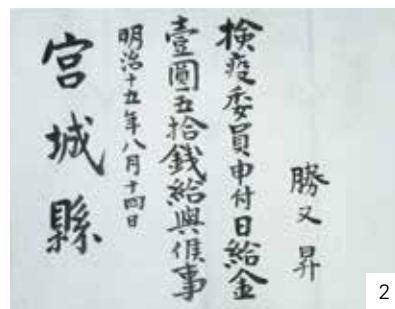 勝又昇
検疫委員申付日給金
壹圓五拾錢給與候事
明治十五年八月十四日
宮城縣
2